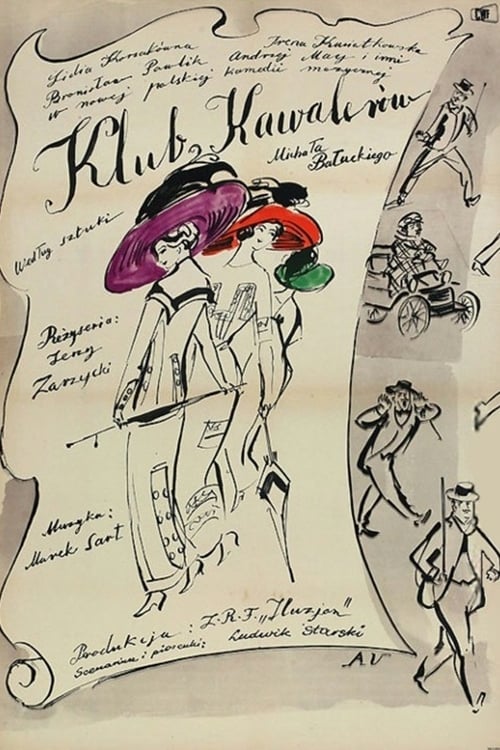 CWF
Lidia Korsakówna Irena Kwiatkowska
Bronisław Pawlik Andrzej May i inni
w nowej polskiej komedii muzycznej
Klub Kawalerów
Michała
Bałuckiego
według sztuki
Reżyseria:
Jerzy
Zarzycki
Muzyka:
Marek Sart
Produkcja: Z.R.F. „Iluzjon”
Scenariusz i piosenki: Ludwik Starski
AU